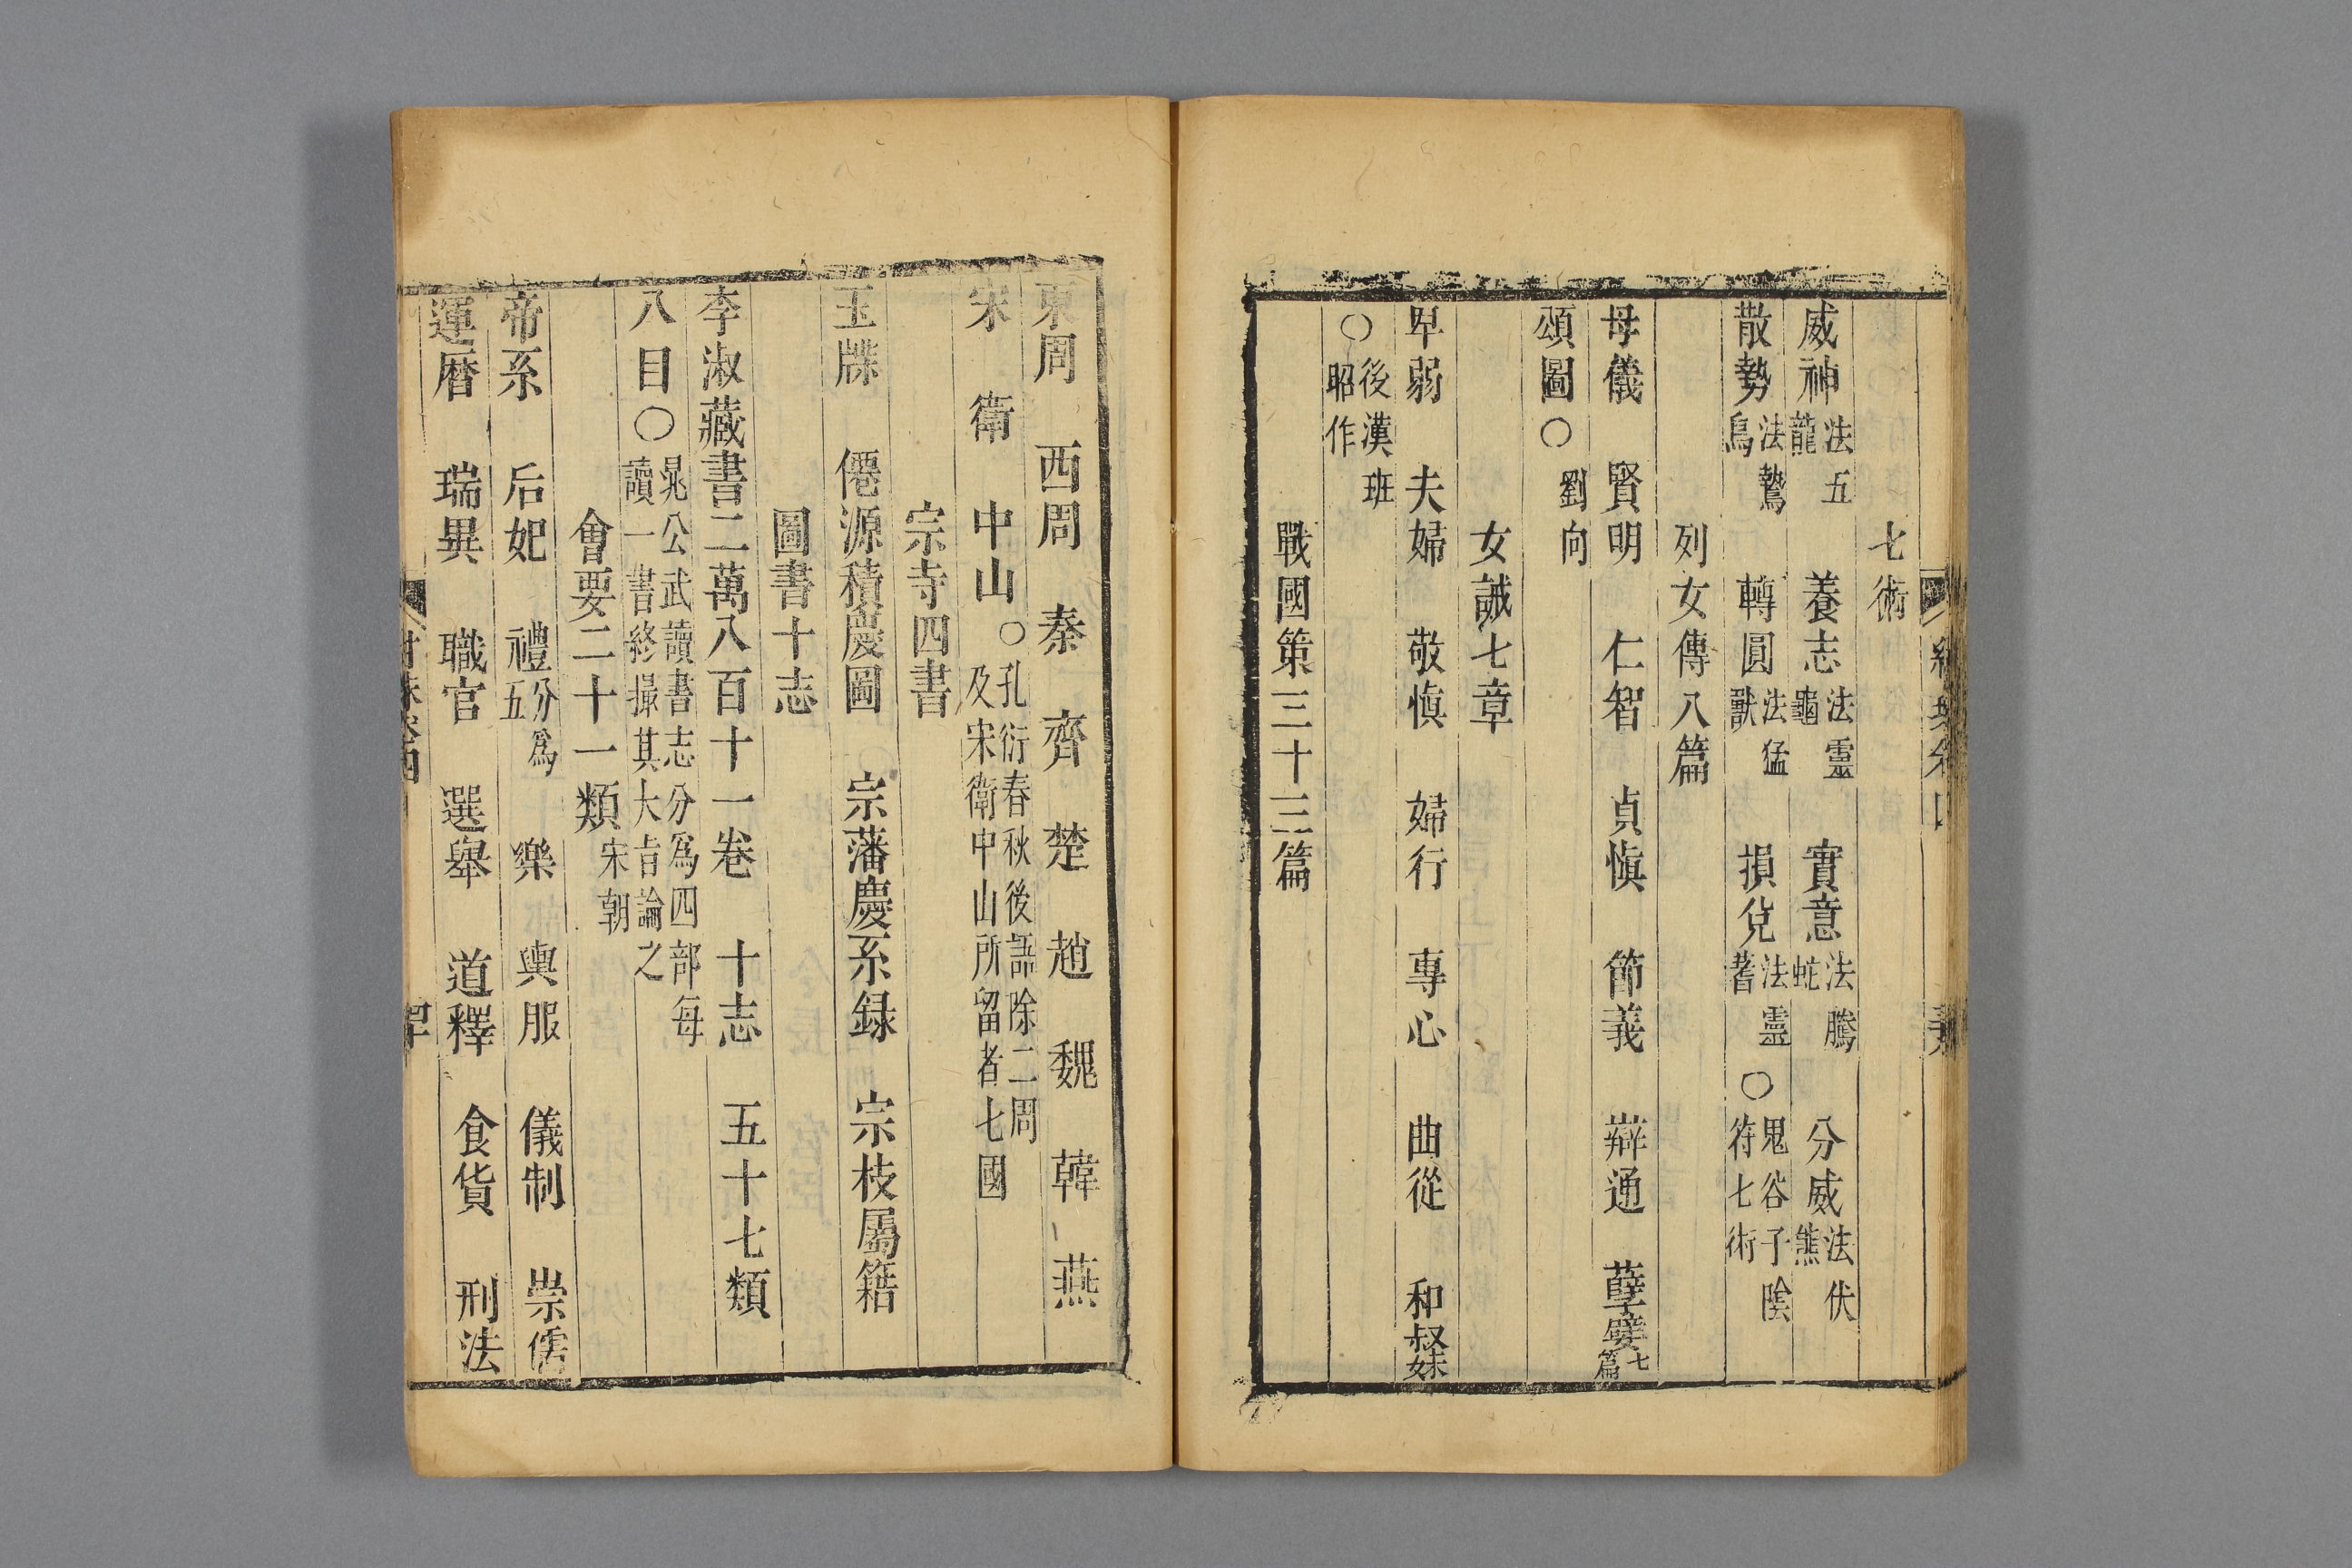 七術
威神法五龍　養志法靈龜　實意法騰蛇　分威法伏熊
散勢法鷙鳥　轉圓法猛獸　損兌法靈蓍〇鬼谷子陰符七術
列女傳八篇
母儀　賢明　仁智　貞愼　節義　辯通　孽嬖七篇
頌圖〇劉向
女誡七章
卑弱　夫婦　敬愼　婦行　專心　曲從　和叔妹
〇後漢班昭作
戰國策三十三篇
東周　西周　秦　齊　楚　趙　魏　韓　燕
宋　衛　中山〇孔衍春秋後語除二周及宋衛中山所留者七國
宗寺四書
玉牒　僊源積慶圖　宗藩慶系録　宗枝屬籍
圖書十志
李淑藏書二萬八百十一卷　十志　五十七類
八目〇晁公武讀書志分為四部每讀一書終撮其大旨論之
會要二十一類宋朝
帝系　后妃　禮分為五　樂　輿服　儀制　崇儒
運曆　瑞異　職官　選舉　道釋　食貨　刑法